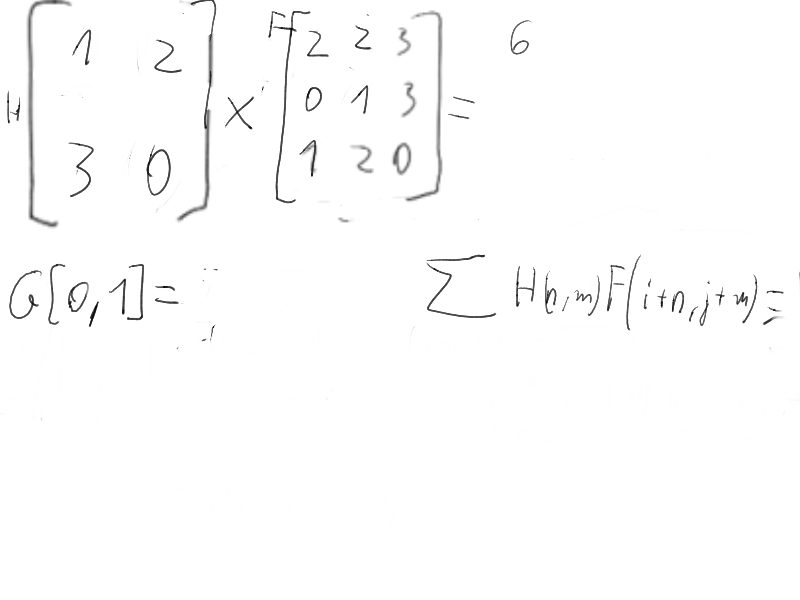 H [1 2 3 0] × F [2 2 3 0 1 3 1 2 0] = G
G[0,1] = ∑ H(n,m)F(i+n,j+m) =